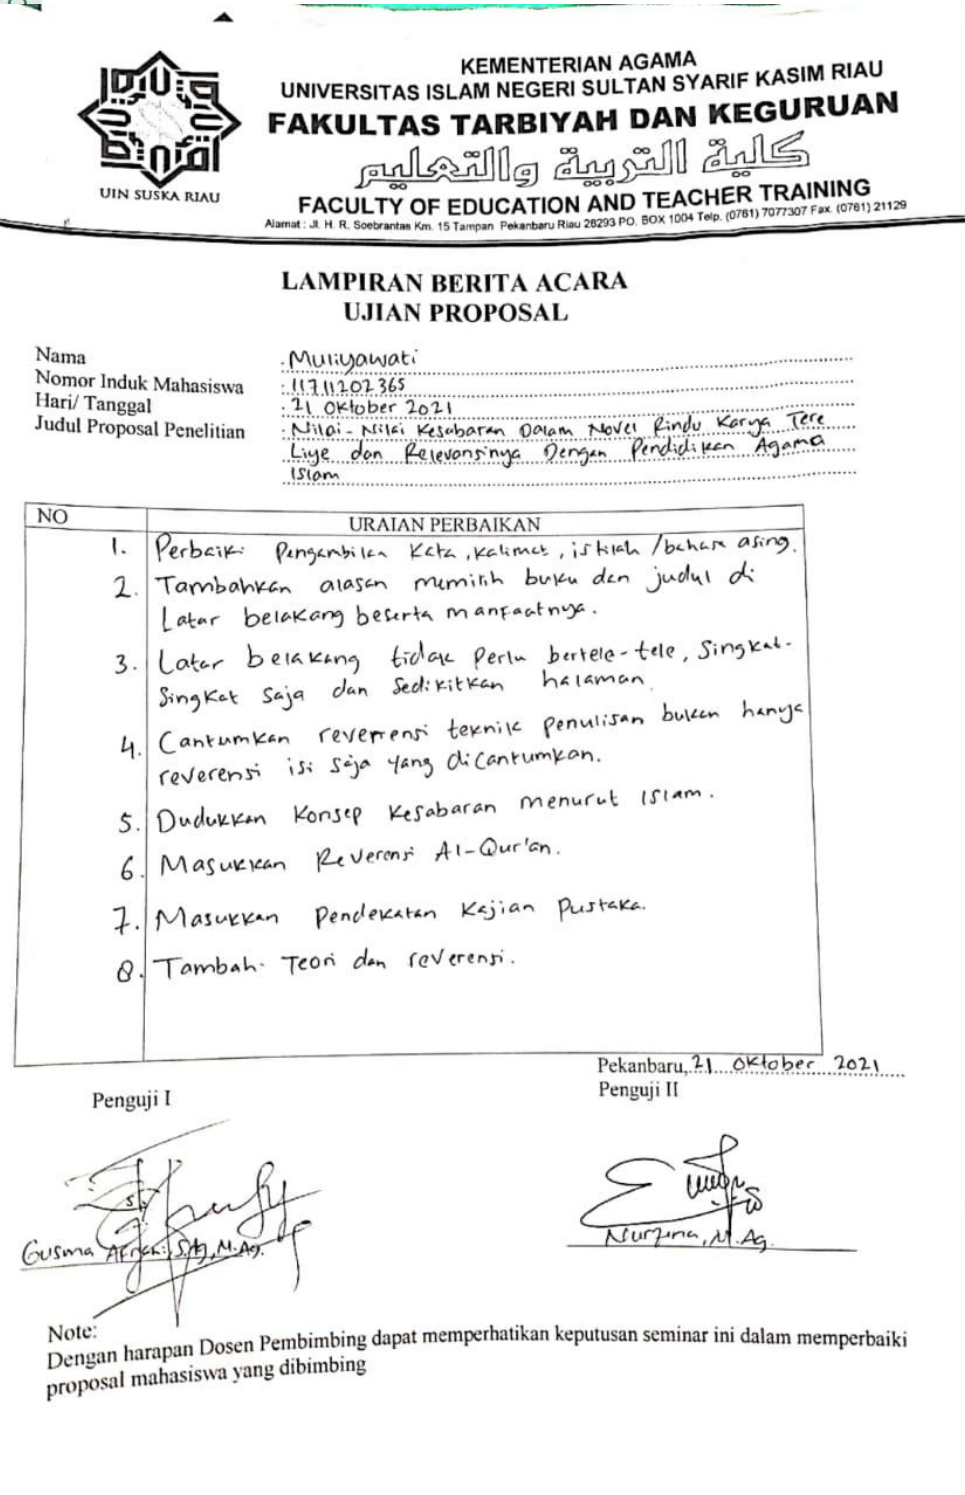 KEMENTERIAN AGAMA
UNIVERSITAS ISLAM NEGERI SULTAN SYARIF KASIM RIAU
FAKULTAS TARBIYAH DAN KEGURUAN
كلية التربية والتعليم
FACULTY OF EDUCATION AND TEACHER TRAINING
Alamat : Jl. H. R. Soebrantas Km. 15 Tampan Pekanbaru Riau 28293 PO. BOX 1004 Telp. (0761) 7077307 Fax. (0761) 21129
UIN SUSKA RIAU
LAMPIRAN BERITA ACARA
UJIAN PROPOSAL
Nama : Muliyawati
Nomor Induk Mahasiswa : 11711202365
Hari/ Tanggal : 21 Oktober 2021
Judul Proposal Penelitian : Nilai-Nilai Kesabaran Dalam Novel Rindu Karya Tere
Liye dan Relevansinya Dengan Pendidikan Agama
Islam
NO URAIAN PERBAIKAN
1. Perbaiki Pengambilan Kata, kalimat, istilah/bahasa asing.
2. Tambahkan alasan memilih buku dan judul di
Latar belakang beserta manfaatnya.
3. Latar belakang tidak Perlu bertele-tele, Singkat-
Singkat saja dan Sedikitkan halaman
4. Cantumkan reverensi teknik penulisan bukan hanya
reverensi isi saja yang dicantumkan.
5. Dudukkan Konsep Kesabaran menurut Islam.
6. Masukkan Reverensi Al-Qur'an.
7. Masukkan Pendekatan Kajian Pustaka.
8. Tambah Teori dan reverensi.
Pekanbaru, 21 Oktober 2021
Penguji I Penguji II
Gusma Afriani, S.Ag, M.Ag. Nurzena, M.Ag.
Note:
Dengan harapan Dosen Pembimbing dapat memperhatikan keputusan seminar ini dalam memperbaiki
proposal mahasiswa yang dibimbing